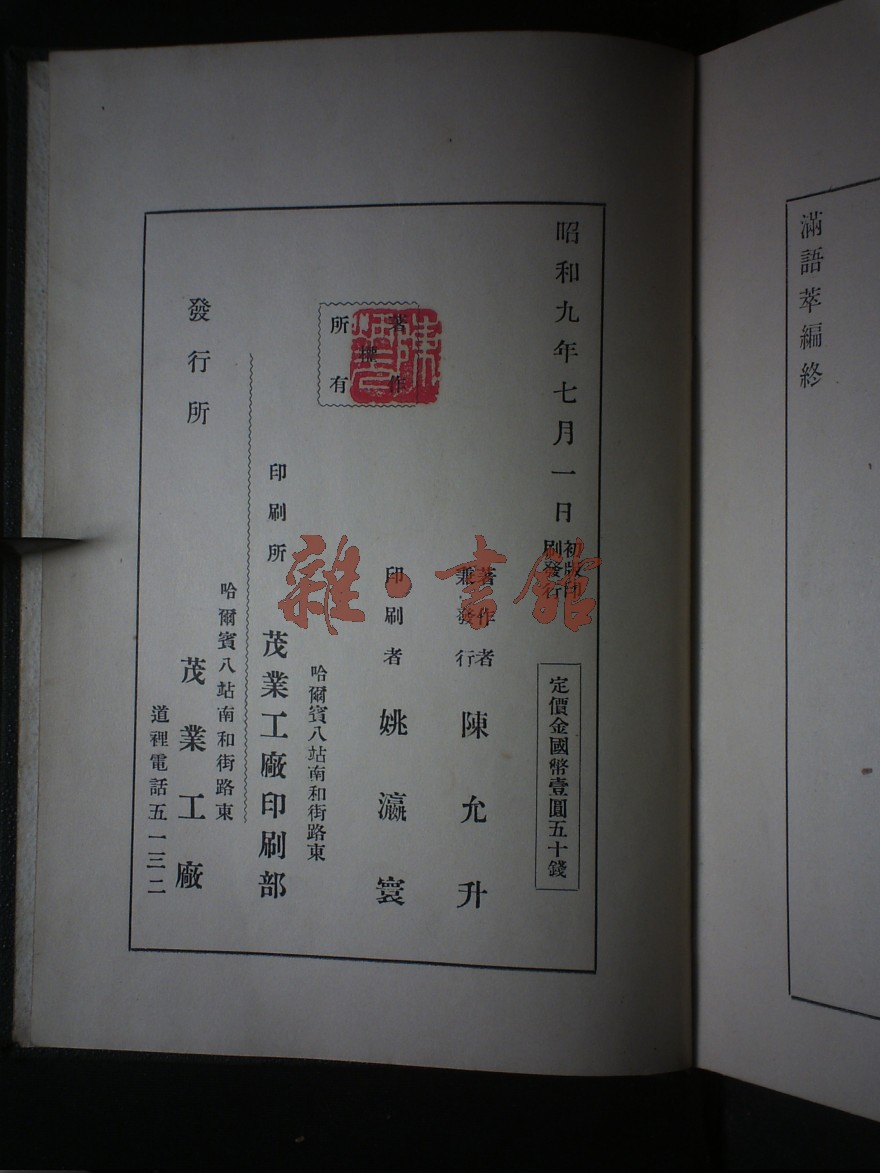 滿語萃編終
昭和九年七月一日
初版印
刷發行
定價金國幣壹圓五十錢
著作者
兼發行
陳允升
印刷者
姚瀛寰
著作
權
所有
哈爾賓八站南和街路東
印刷所
茂業工廠印刷部
哈爾賓八站南和街路東
發行所
茂業工廠
道裡電話五一三二
雜·書館